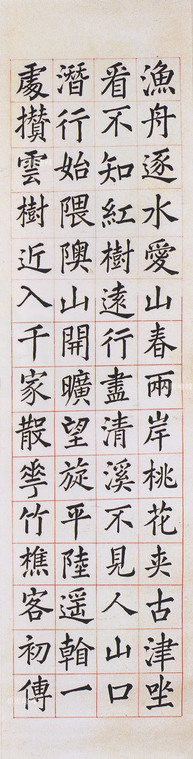 漁舟逐水愛山春兩岸桃花夾古津坐
看不知紅樹遠行盡清溪不見人山口
潛行始隈隩山開曠望旋平陸遥一
處攢雲樹近入千家散竹樵客初傳